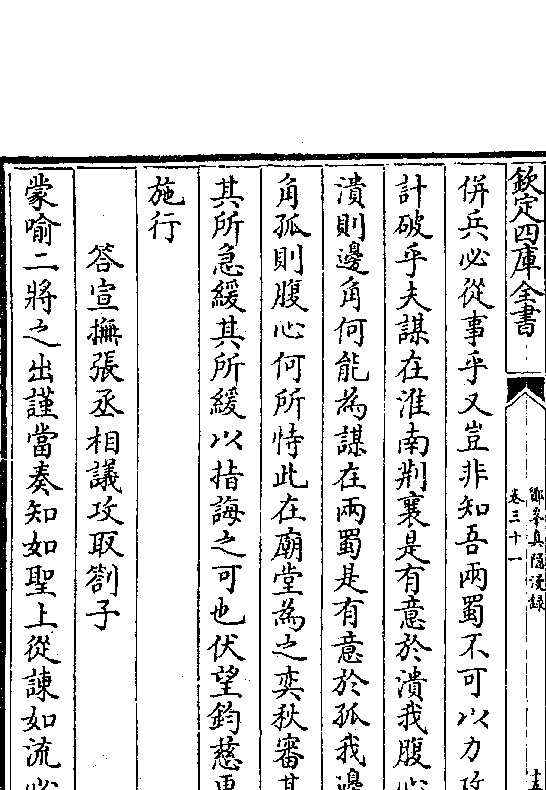 欽定四庫全書
鄮峯真隱漫録
卷三十一
併兵必從事乎又豈非知吾兩蜀不可以力攻
計破乎夫謀在淮南荆襄是有意於潰我腹心
潰則邊角何能為謀在兩蜀是有意於孤我邊
角孤則腹心何所恃此在廟堂為之奕秋審其
其所急緩其所緩以指誨之可也伏望鈞慈更
施行
答宣撫張丞相議攻取劄子
蒙喻二將之出謹當奏知如聖上從諫如流必